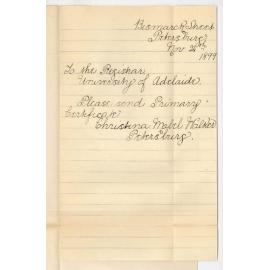 Bismarck Street
Petersburg
Nov 24th
1899
To the Registrar
University of Adelaide.
Please send Primary
Certificate
Christina Mabel Walker
Petersburg.